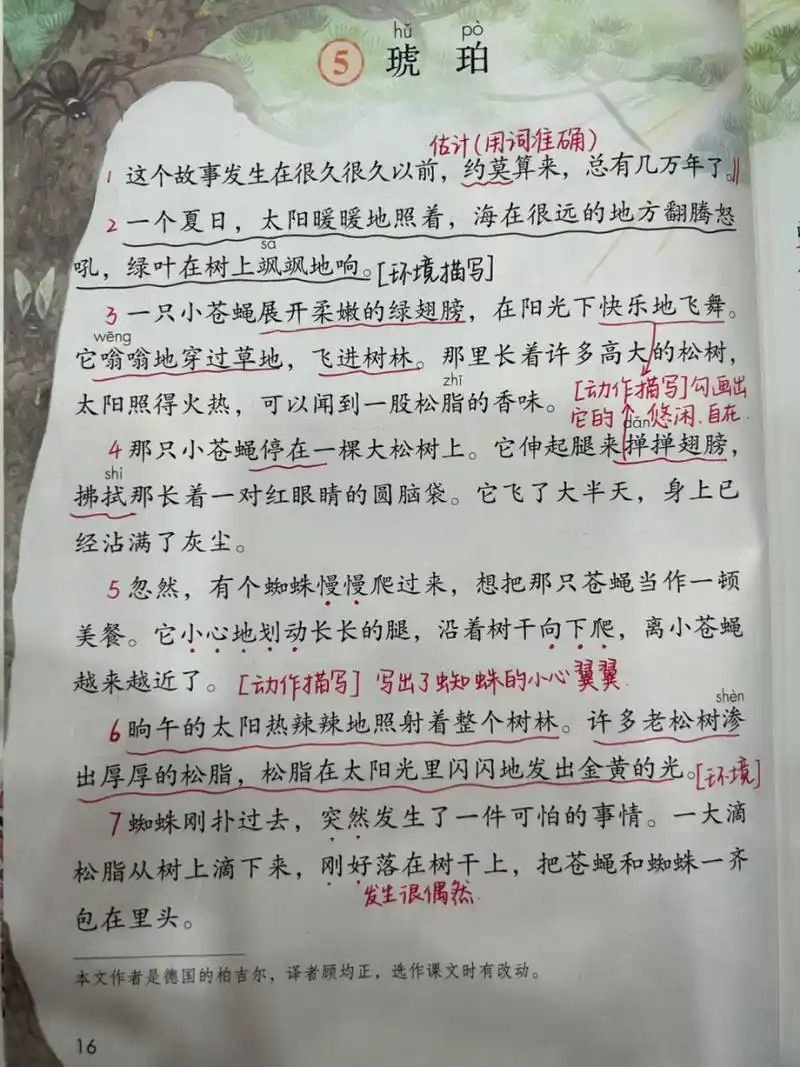 hǔ pò
5 琥珀
估计(用词准确)
1 这个故事发生在很久很久以前，约莫算来，总有几万年了。
2 一个夏日，太阳暖暖地照着，海在很远的地方翻腾怒
sà
吼，绿叶在树上飒飒地响。[环境描写]
3 一只小苍蝇展开柔嫩的绿翅膀，在阳光下快乐地飞舞。
wēng
它嗡嗡地穿过草地，飞进树林。那里长着许多高大的松树，
zhī
太阳照得火热，可以闻到一股松脂的香味。
[动作描写]勾画出
它的悠闲.自在.
dǎn
4 那只小苍蝇停在一棵大松树上。它伸起腿来掸掸翅膀，
shì
拂拭那长着一对红眼睛的圆脑袋。它飞了大半天，身上已
经沾满了灰尘。
5 忽然，有个蜘蛛慢慢爬过来，想把那只苍蝇当作一顿
美餐。它小心地划动长长的腿，沿着树干向下爬，离小苍蝇
越来越近了。[动作描写] 写出了蜘蛛的小心翼翼.
shèn
6 晌午的太阳热辣辣地照射着整个树林。许多老松树渗
出厚厚的松脂，松脂在太阳光里闪闪地发出金黄的光。[环境]
7 蜘蛛刚扑过去，突然发生了一件可怕的事情。一大滴
松脂从树上滴下来，刚好落在树干上，把苍蝇和蜘蛛一齐
发生很偶然.
包在里头。
本文作者是德国的柏吉尔，译者顾均正，选作课文时有改动。
16